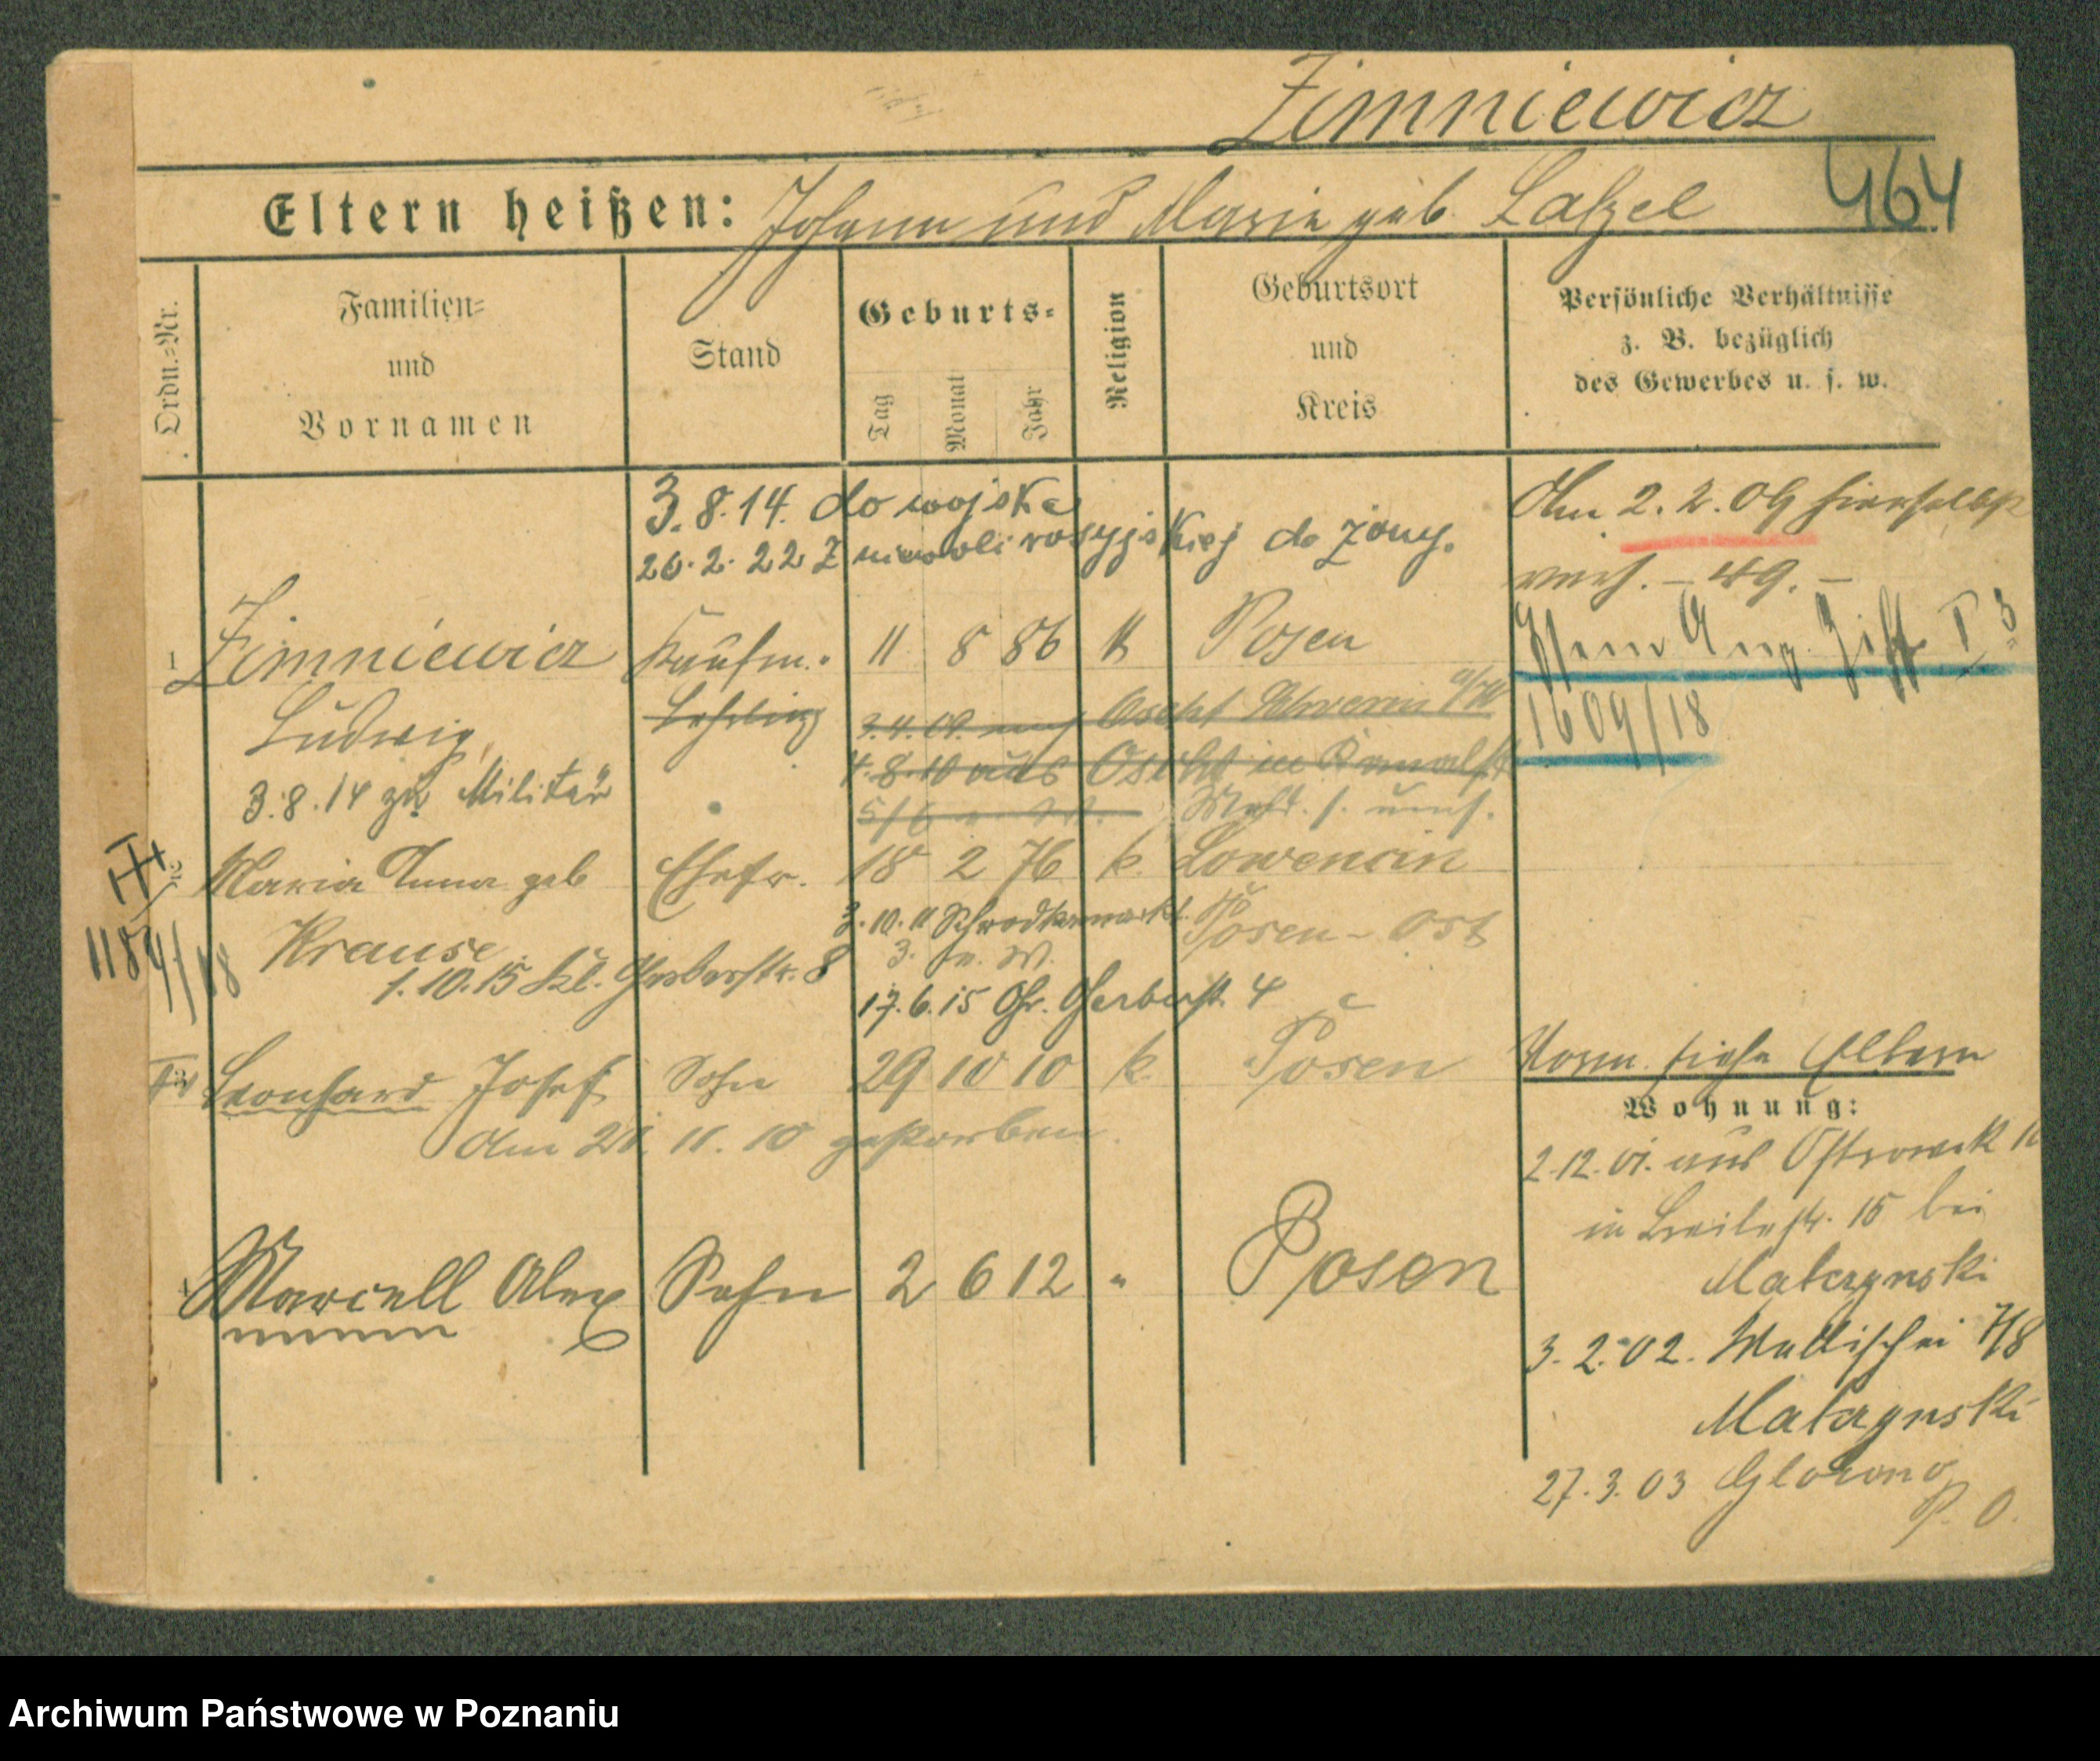 Zimniewicz
464
Eltern heißen: Johann und Marie geb. Latzel
Ordn.=Nr.
Familien=
und
Vornamen
Stand
Geburts=
Tag
Monat
Jahr
Religion
Geburtsort
und
Kreis
Persönliche Verhältnisse
z. B. bezüglich
des Gewerbes u. s. w.
3.8.14. do wojska
26.2.22 z niewoli rosyjskiej do żony.
Am 2.2.09 hierselbst
verh. – 49. –
1 Zimniewicz Kaufm. 11 8 86 k Posen
1609/18
Ludwig Lehrling
3.8.14 zu Militär
Maria Anna geb Ehefr. 18 2 76 k. Lowencin
1184/18
Krause Posen-Ost
3.10.11 Schrodkamarkt
3. b. W.
1.10.15 Kl. Gerberstr. 8
17.6.15 Gr. Gerberstr. 4
Leonhard Josef Sohn 29 10 10 k. Posen
Am 21. 11. 10 gestorben.
Norm. siehe Eltern
Wohnung:
2.12.01. aus Ostrowek 10
in Breitestr. 15 bei
Matczynski
Marcell Alex Sohn 2 6 12 " Posen
3.2.02. Wallischei 7/8
Matczynski
27.3.03 Glowno
P. O.
Archiwum Państwowe w Poznaniu